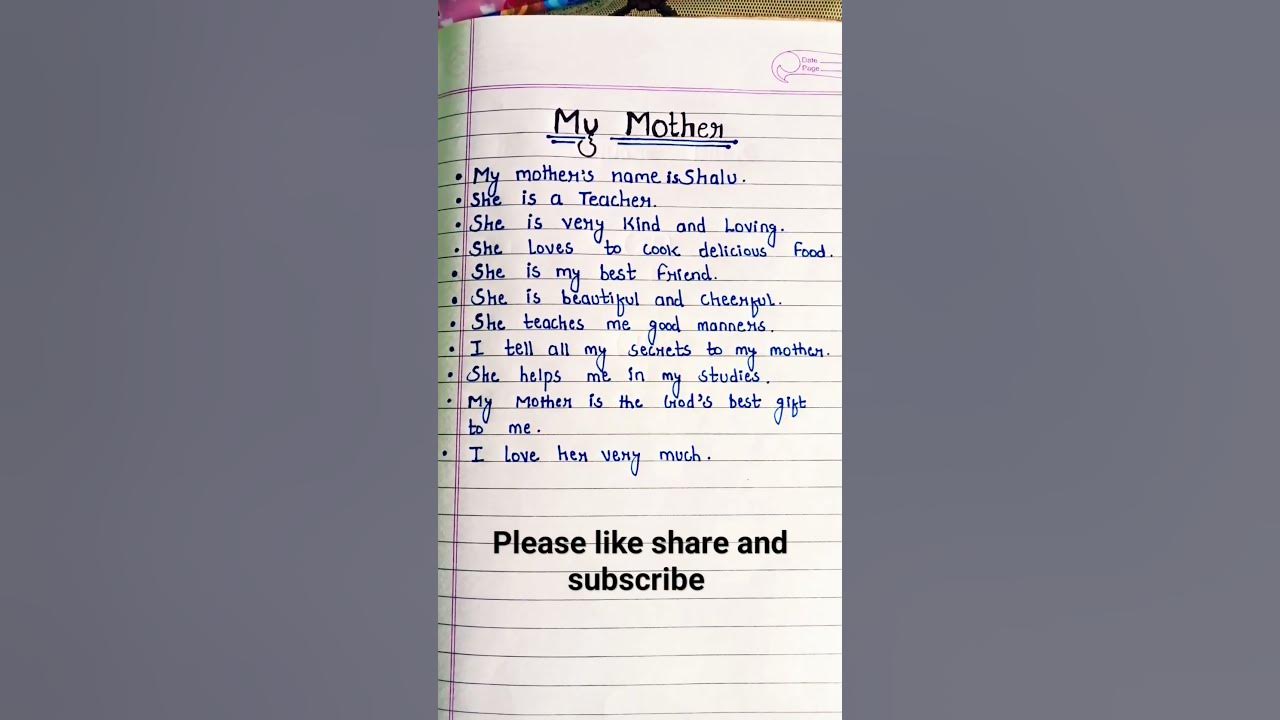 Date
Page
My Mother
• My mother's name is Shalu.
• She is a Teacher.
• She is very Kind and Loving.
• She Loves to cook delicious Food.
• She is my best Friend.
• She is beautiful and cheerful.
• She teaches me good manners.
• I tell all my secrets to my mother.
• She helps me in my studies.
• My Mother is the God's best gift
to me.
• I Love her very much.
Please like share and
subscribe